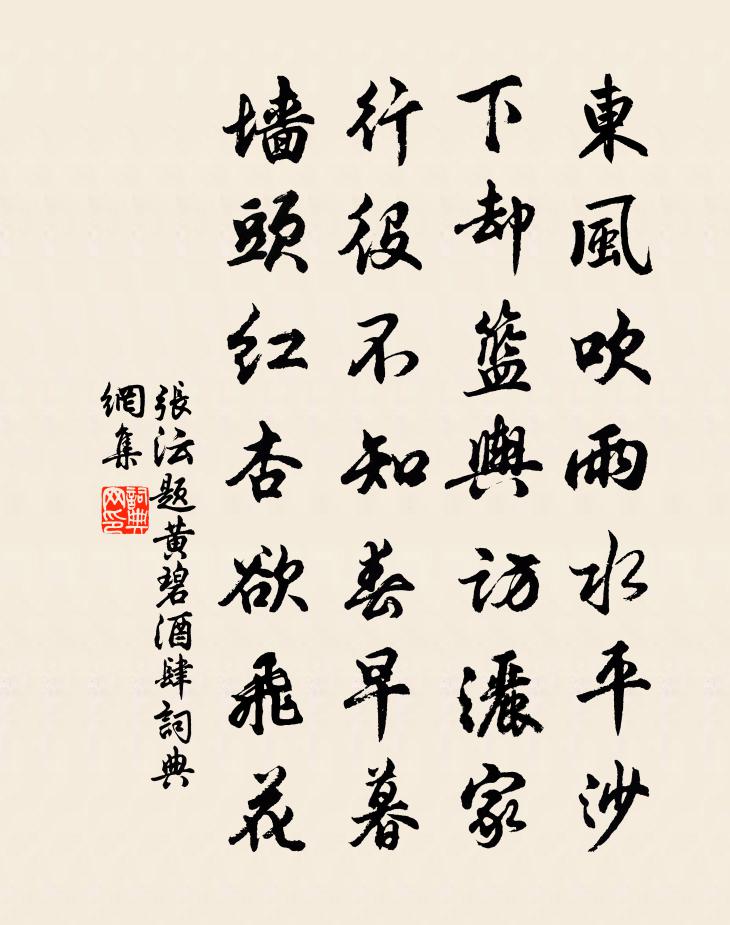 東風吹雨水平沙
下却籃輿訪灑家
行役不知春早暮
墙頭红杏欲飛花
張沄题黄碧酒肆詞典
網集
詞典
网印